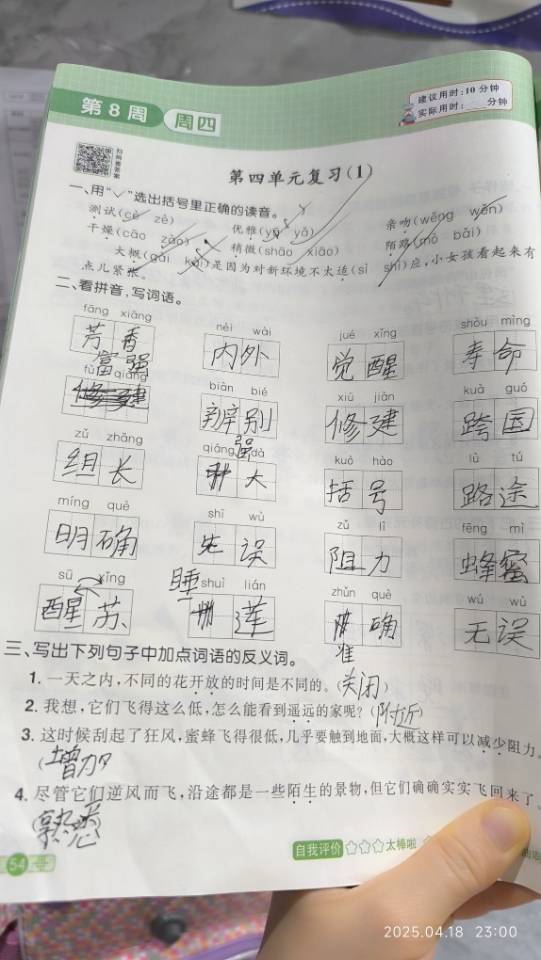 第8周 周四
建议用时:10分钟
实际用时: 分钟
扫码看答案
第四单元复习(1)
一、用“✓”选出括号里正确的读音。
测试(cè zè) 优雅(yǎ yā) 亲吻(wěng wěn)
干燥(cāo zào) 稍微(shāo xiāo) 陌路(mò bǎi)
大概(gài kài)是因为对新环境不太适(sì shì)应,小女孩看起来有
点儿紧张。
二、看拼音,写词语。
fāng xiāng nèi wài jué xǐng shòu mìng
芳香 内外 觉醒 寿命
富强
fù qiáng biàn bié xiū jiàn kuà guó
修建 辨别 修建 跨国
zǔ zhǎng qiáng dà kuò hào lù tú
强
组长 大 括号 路途
míng què shī wù zǔ lì fēng mì
明确 失误 阻力 蜂蜜
sū xǐng shuì lián zhǔn què wú wù
睡
醒苏 莲 确 无误
准
三、写出下列句子中加点词语的反义词。
1. 一天之内,不同的花开放的时间是不同的。(关闭)
2. 我想,它们飞得这么低,怎么能看到遥远的家呢?(附近)
3. 这时候刮起了狂风,蜜蜂飞得很低,几乎要触到地面,大概这样可以减少阻力。
(增加)
4. 尽管它们逆风而飞,沿途都是一些陌生的景物,但它们确确实实飞回来了。
(熟悉)
54 自我评价 ☆☆☆太棒啦
2025.04.18 23:00